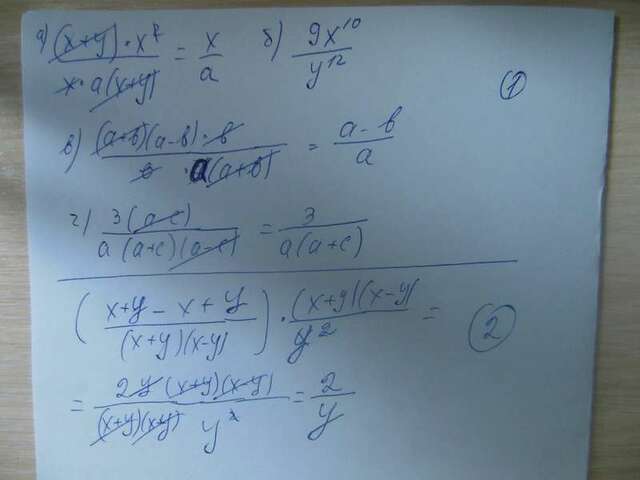 а) (x+y)·x² / x·a(x+y) = x/a б) 9x¹⁰ / y¹²
①
в) (a+b)(a-b)·b / b·a(a+b) = a-b / a
г) 3(a-c) / a(a+c)(a-c) = 3 / a(a+c)
( x+y-x+y / (x+y)(x-y) ) · (x+y)(x-y) / y² = ②
= 2y(x+y)(x-y) / (x+y)(x+y) y² = 2/y